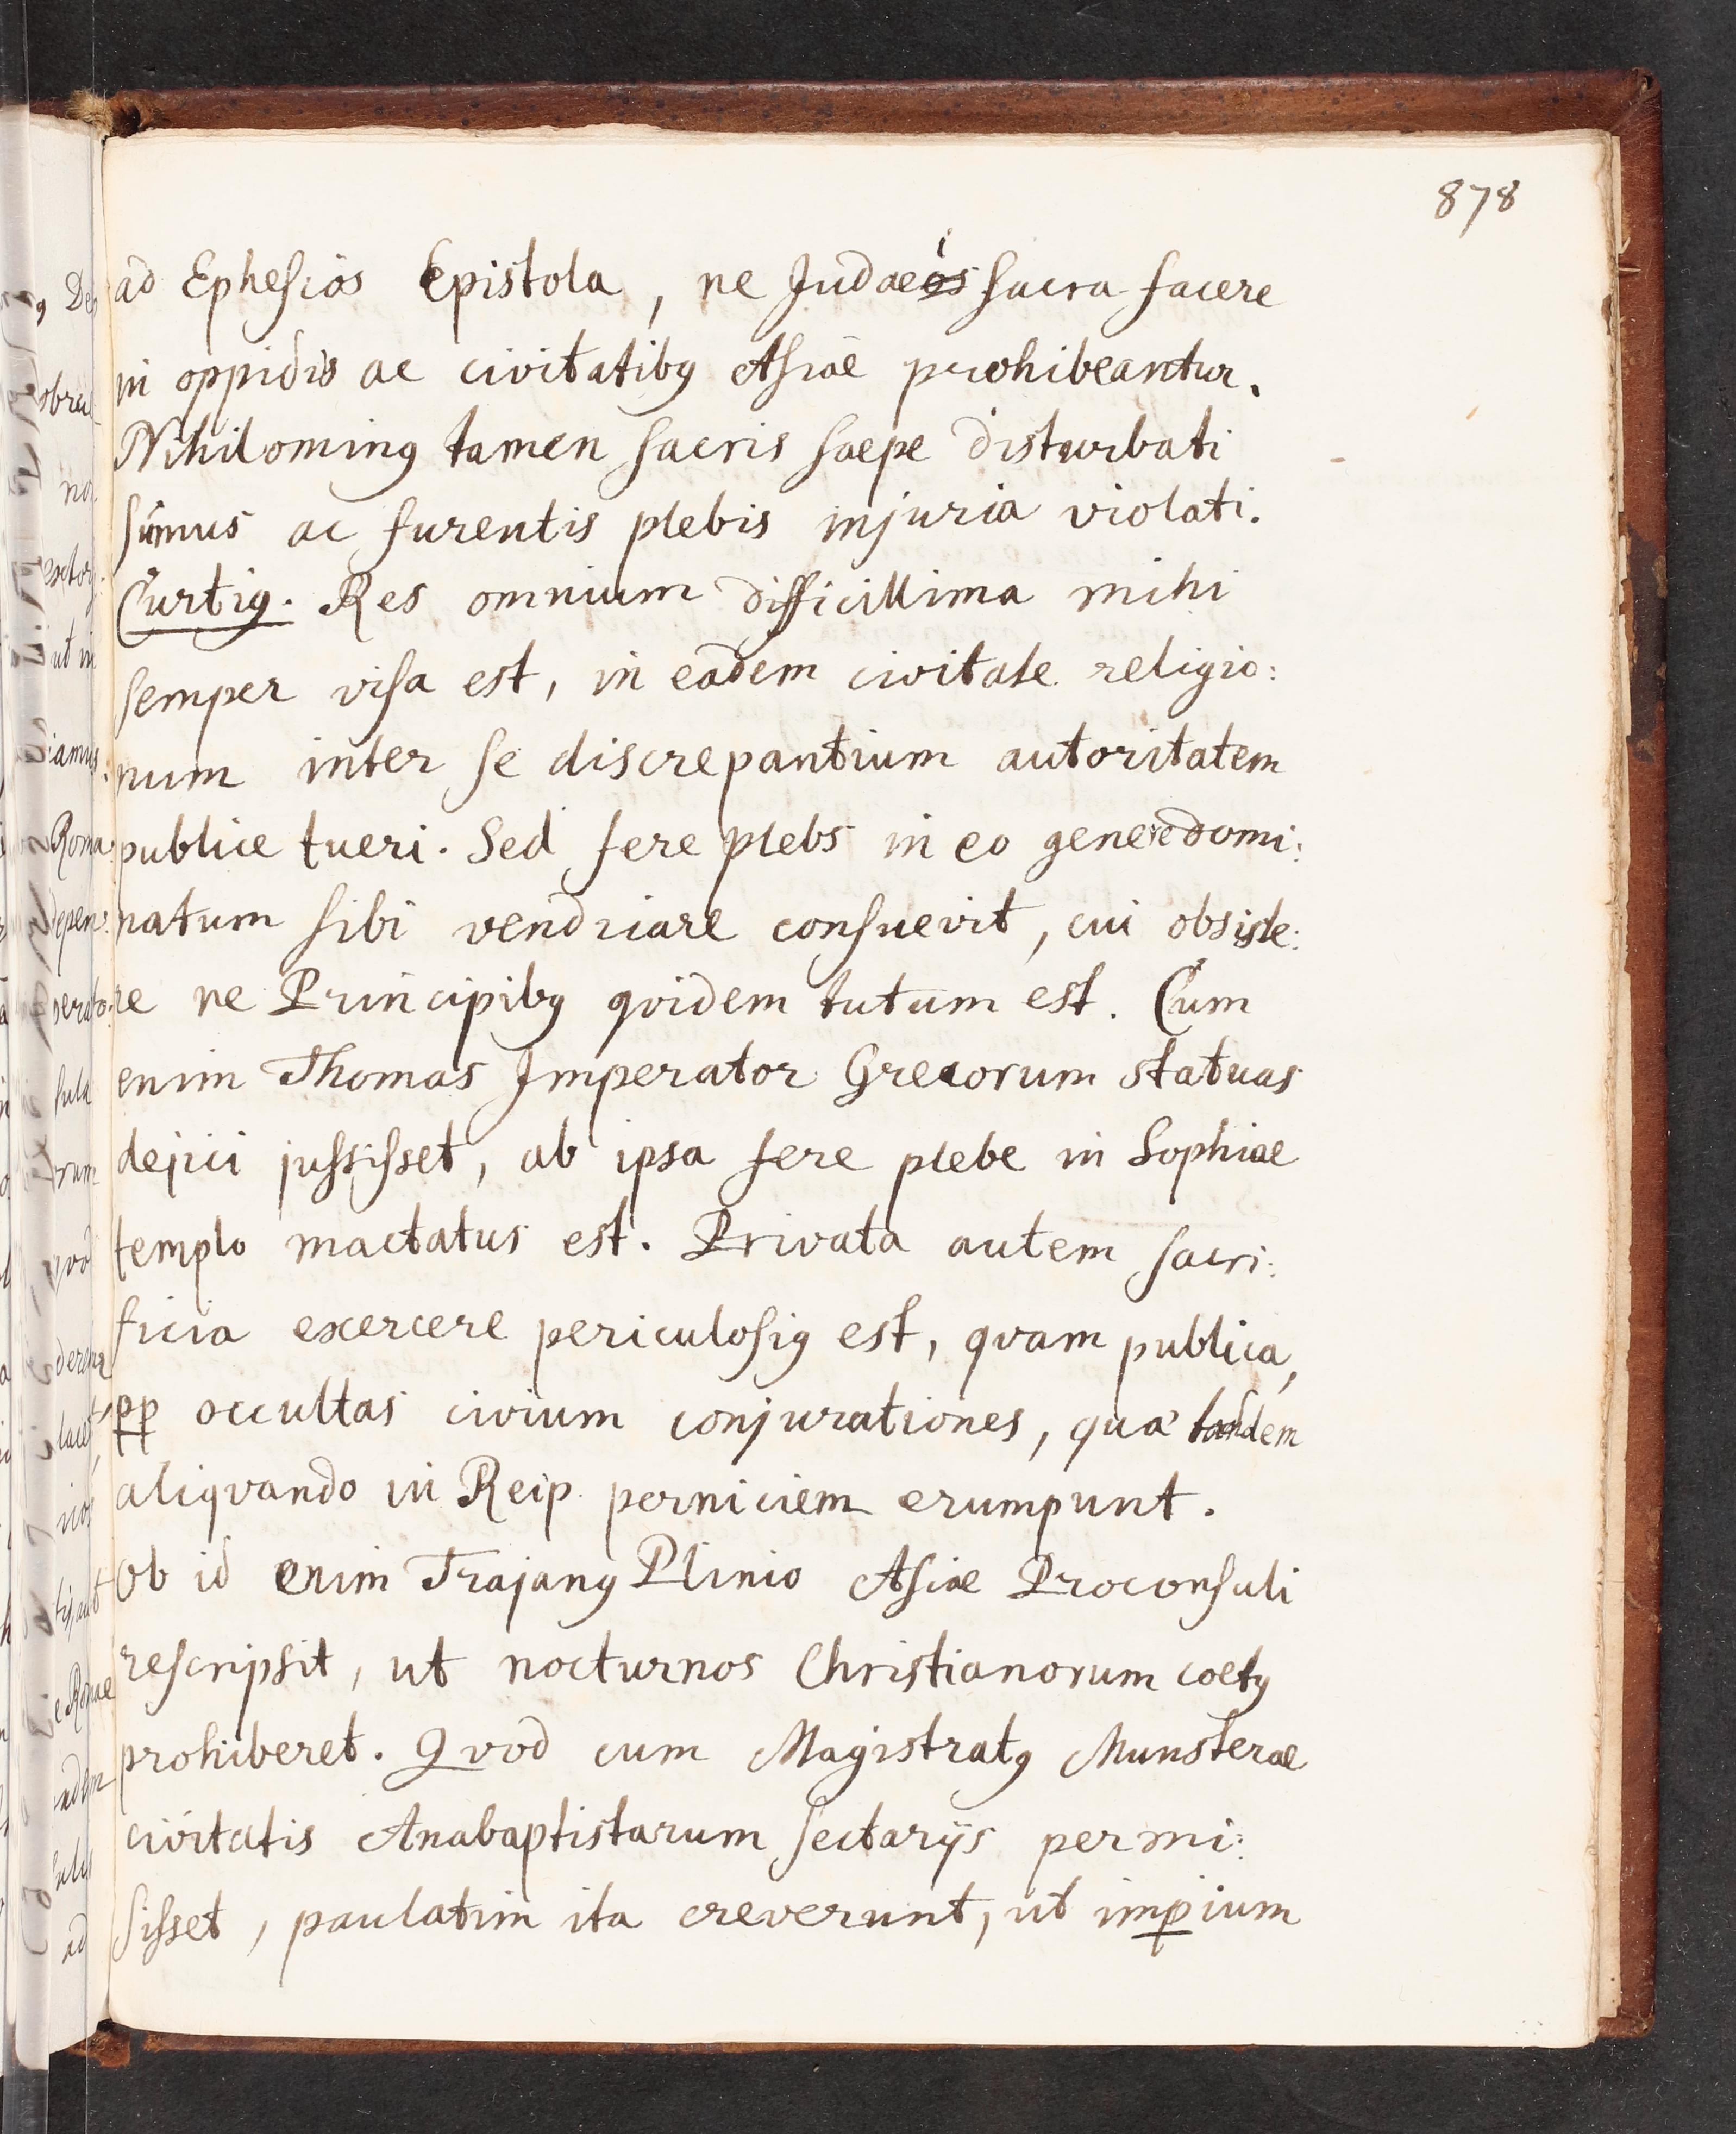 878
ad Ephesios Epistola, ne Judaei sacra facere
in oppidis ac civitatibꝰ Asiae prohibeantur.
Nihilominꝰ tamen sacris saepe disturbati
sumus ac furentis plebis injuria violati.
Curtiꝰ. Res omnium difficillima mihi
semper visa est, in eadem civitate religio:
num inter se discrepantium autoritatem
publice tueri. Sed fere plebs in eo genere domi:
natum sibi vendicare consuevit, cui obsiste:
re ne Principibꝰ qvidem tutum est. Cum
enim Thomas Imperator Grecorum statuas
dejici jussisset, ab ipsa fere plebe in Sophiae
templo mactatus est. Privata autem sacri:
ficia exercere periculosiꝰ est, qvam publica,
pp occultas civium conjurationes, qua tandem
aliqvando in Reip. perniciem erumpunt.
Ob id enim Trajanꝰ Plinio Asiae Proconsuli
rescripsit, ut nocturnos Christianorum coetꝰ
prohiberet. Qvod cum Magistratꝰ Munsterae
civitatis Anabaptistarum sectarijs permi:
sisset, paulatim ita creverunt, ut imꝑium